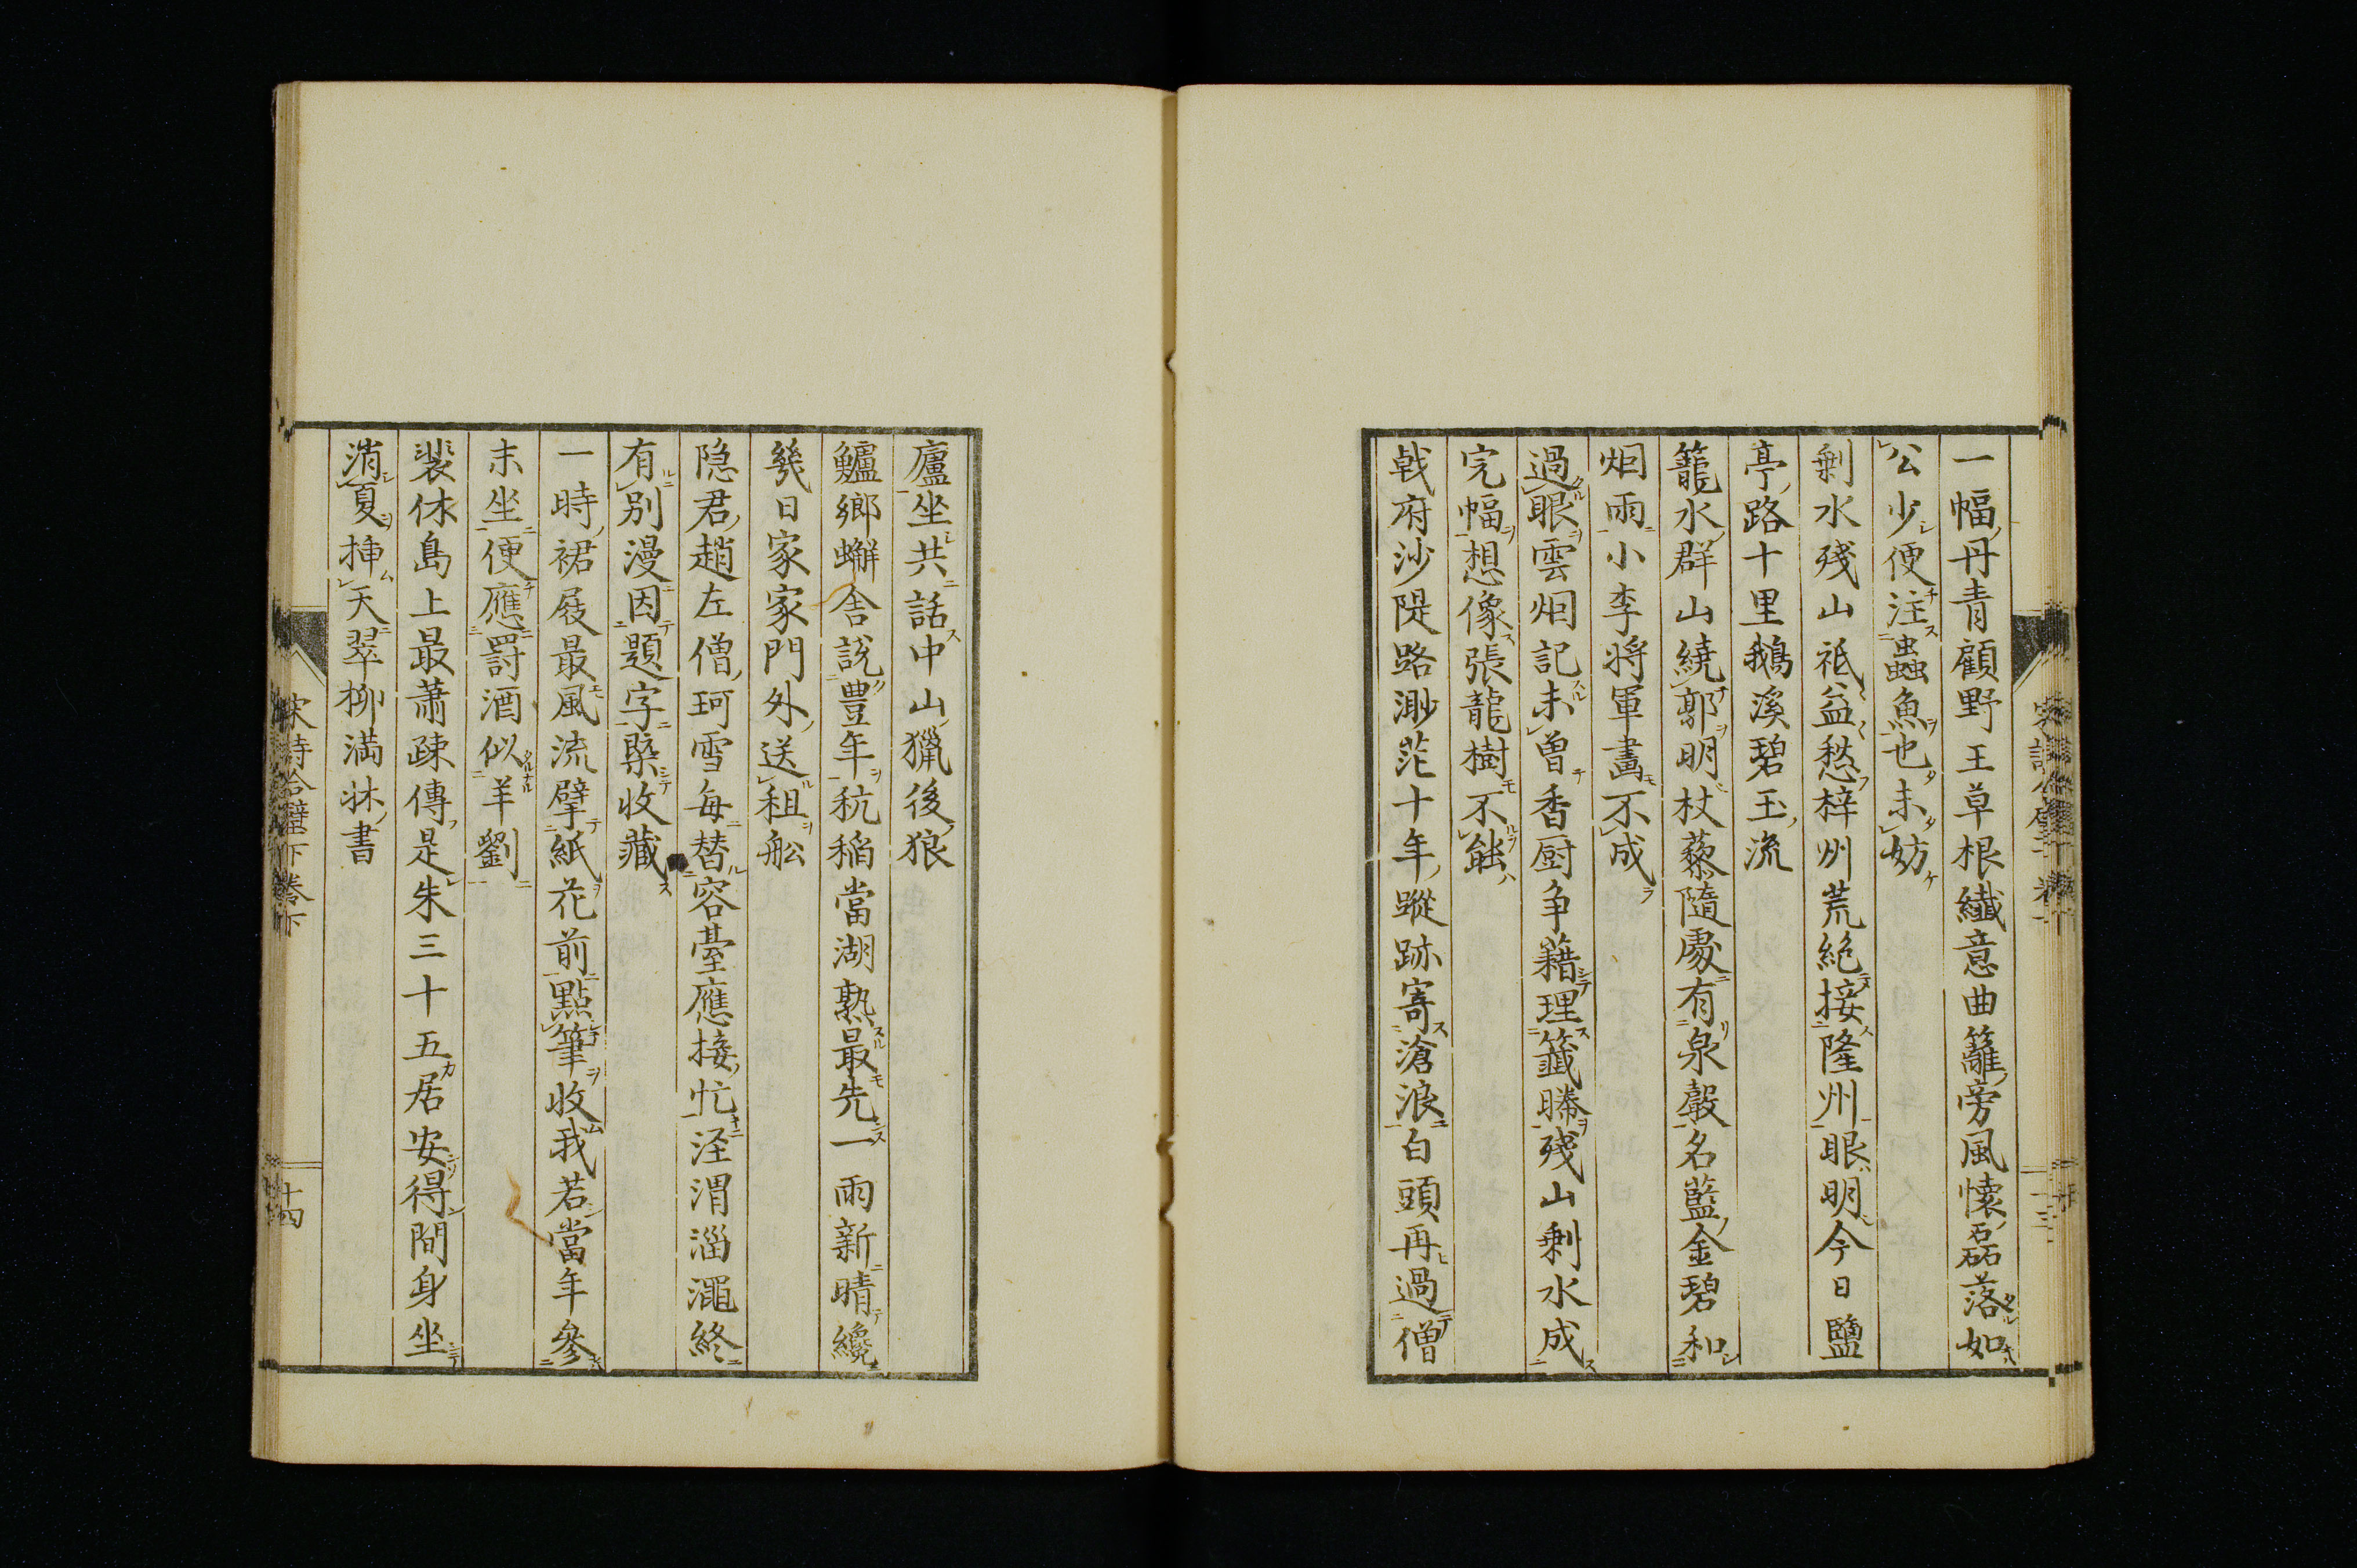 一幅丹青顧野王草根纖意曲籬旁風懷磊落如
公少便注蟲魚也未妨
剩水殘山祇益愁梓州荒絶接隆州眼明今日鹽
亭路十里鵝溪碧玉流
籠水群山繞郭明杖藜隨處有泉聲名藍金碧和
烟雨小李将軍畫不成
過眼雲烟記未曽香厨争藉理籖縢殘山剰水成
完幅想像張龍樹不能
戟府沙隄路渺茫十年蹤跡寄滄浪白頭再過僧
廬坐共話中山獵後狼
鱸鄉蠏舎説豊年秔稲當湖熟最先一雨新晴纔
幾日家家門外送租舩
隐君趙左僧珂雪每替容臺應接忙涇渭淄澠終
有别漫因題字槩收藏
一時裙屐最風流擘紙花前點筆收我若當年參
末坐便應罸酒似羊劉
裴休島上最蕭疎傳是朱三十五居安得閒身坐
消夏挿天翠栁満牀書
宋詩合璧下巻下
十四